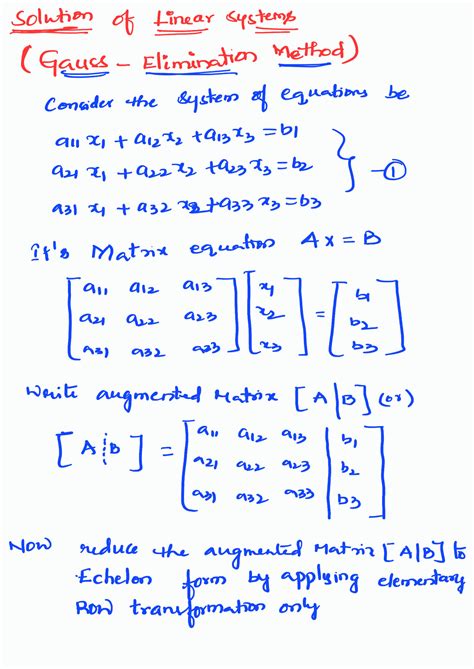 Solution of Linear Systems
(Gauss - Elimination Method)
Consider the system of equations be
a11 x1 + a12 x2 + a13 x3 = b1
a21 x1 + a22 x2 + a23 x3 = b2
a31 x1 + a32 x2 + a33 x3 = b3
} - ①
It's Matrix equation AX = B
[a11 a12 a13] [x1] = [b1]
[a21 a22 a23] [x2] = [b2]
[a31 a32 a33] [x3] = [b3]
Write augmented Matrix [A|B] (or)
[A¦B] = [a11 a12 a13 | b1]
[a21 a22 a23 | b2]
[a31 a32 a33 | b3]
Now reduce the augmented Matrix [A|B] to
Echelon form by applying elementary
Row transformation only